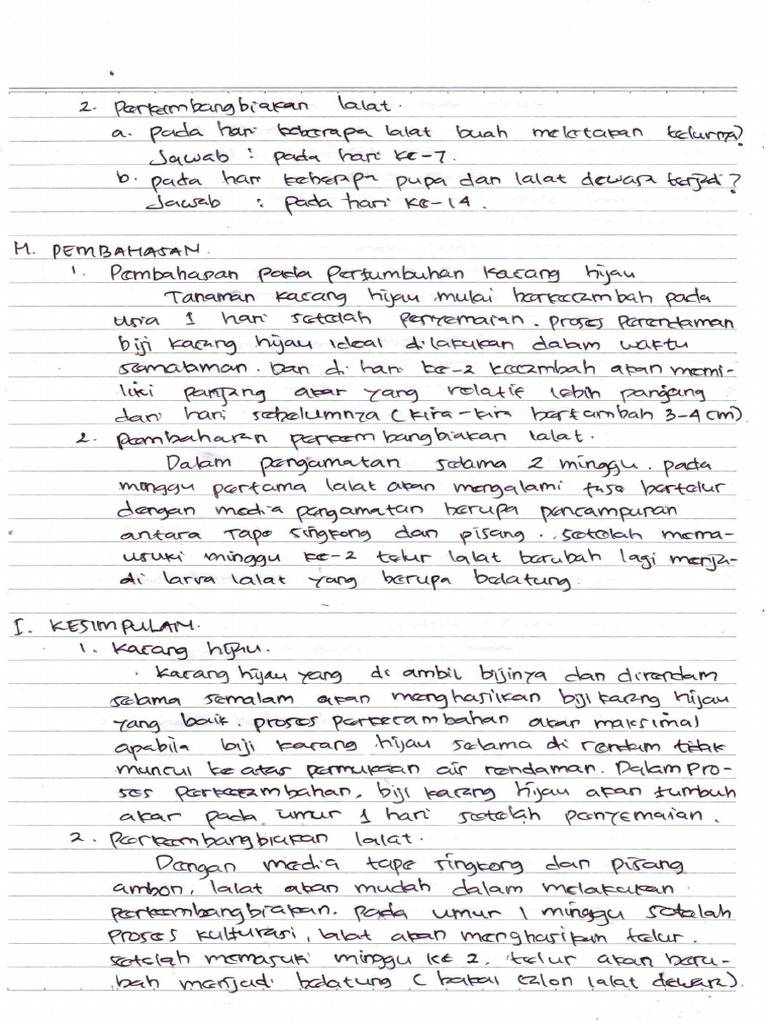 2. Perkembangbiakan lalat.
a. pada hari keberapa lalat buah meletakan telurnya?
Jawab : pada hari ke-7.
b. pada hari keberapa pupa dan lalat dewasa terjadi?
Jawab : pada hari ke-14.
H. PEMBAHASAN.
1. Pembahasan pada Pertumbuhan kacang hijau
Tanaman kacang hijau mulai berkecambah pada
usia 1 hari setelah penyemaian. proses perendaman
biji kacang hijau ideal dilakukan dalam waktu
semalaman. Dan di hari ke-2 kecambah akan memi-
liki panjang akar yang relatif lebih panjang
dari hari sebelumnya (kira-kira bertambah 3-4 cm)
2. pembahasan perkembangbiakan lalat.
Dalam pengamatan selama 2 minggu. pada
minggu pertama lalat akan mengalami fase bertelur
dengan media pengamatan berupa pencampuran
antara Tape singkong dan pisang. setelah mema-
usuki minggu ke-2 telur lalat berubah lagi menja-
di larva lalat yang berupa belatung.
I. KESIMPULAN.
1. Kacang hijau.
Kacang hijau yang di ambil bijinya dan direndam
selama semalam akan menghasilkan biji kacang hijau
yang baik. proses perkecambahan akar maksimal
apabila biji kacang hijau selama di rendam tidak
muncul ke atas permukaan air rendaman. Dalam Pro-
ses perkecambahan, biji kacang hijau akan tumbuh
akar pada umur 1 hari setelah penyemaian.
2. Perkembangbiakan lalat.
Dengan media tape singkong dan pisang
ambon, lalat akan mudah dalam melakukan
perkembangbiakan. pada umur 1 minggu setelah
proses kulturasi, lalat akan menghasilkan telur.
setelah memasuki minggu ke 2. telur akan beru-
bah menjadi belatung (bakal calon lalat dewasa).